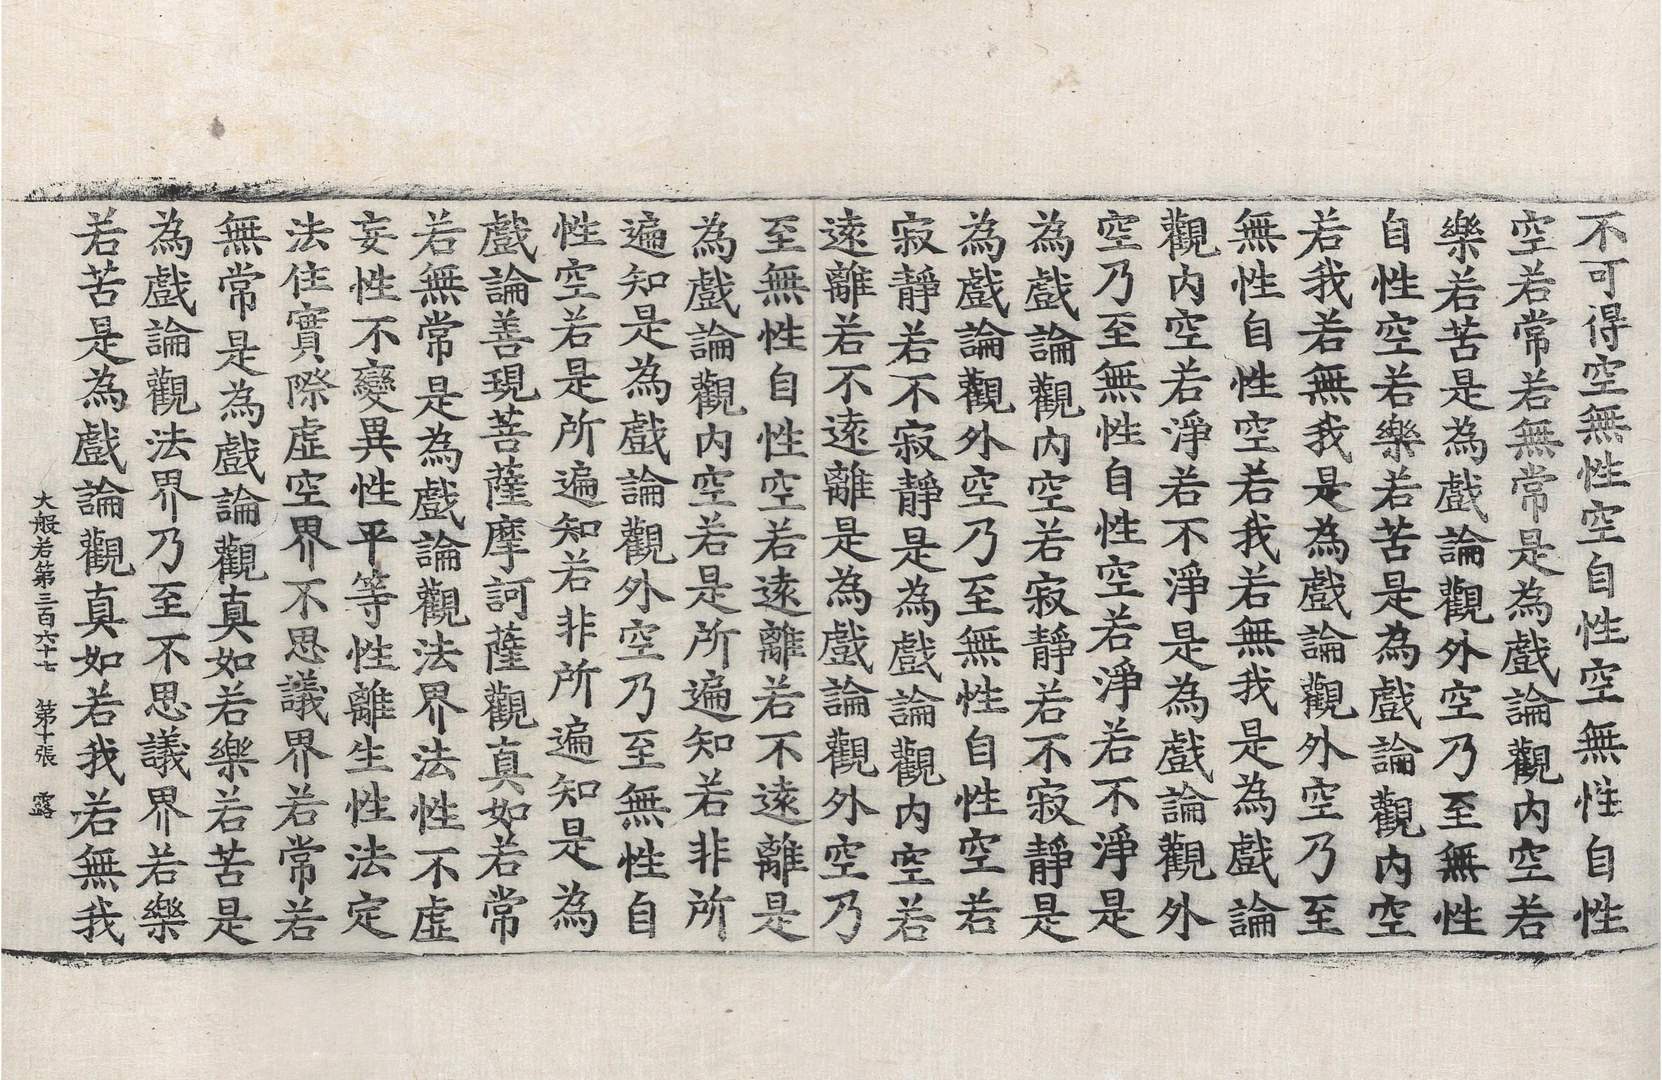 不可得空無性空自性空無性自性
空若常若無常是為戲論觀內空若
樂若苦是為戲論觀外空乃至無性
自性空若樂若苦是為戲論觀內空
若我若無我是為戲論觀外空乃至
無性自性空若我若無我是為戲論
觀內空若淨若不淨是為戲論觀外
空乃至無性自性空若淨若不淨是
為戲論觀內空若寂靜若不寂靜是
為戲論觀外空乃至無性自性空若
寂靜若不寂靜是為戲論觀內空若
遠離若不遠離是為戲論觀外空乃
至無性自性空若遠離若不遠離是
為戲論觀內空若是所遍知若非所
遍知是為戲論觀外空乃至無性自
性空若是所遍知若非所遍知是為
戲論善現菩薩摩訶薩觀真如若常
若無常是為戲論觀法界法性不虛
妄性不變異性平等性離生性法定
法住實際虛空界不思議界若常若
無常是為戲論觀真如若樂若苦是
為戲論觀法界乃至不思議界若樂
若苦是為戲論觀真如若我若無我
大般若第三百六十七 第十張 露